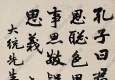 孔子曰君
思聰色
事思敬疑
思義
大統先生